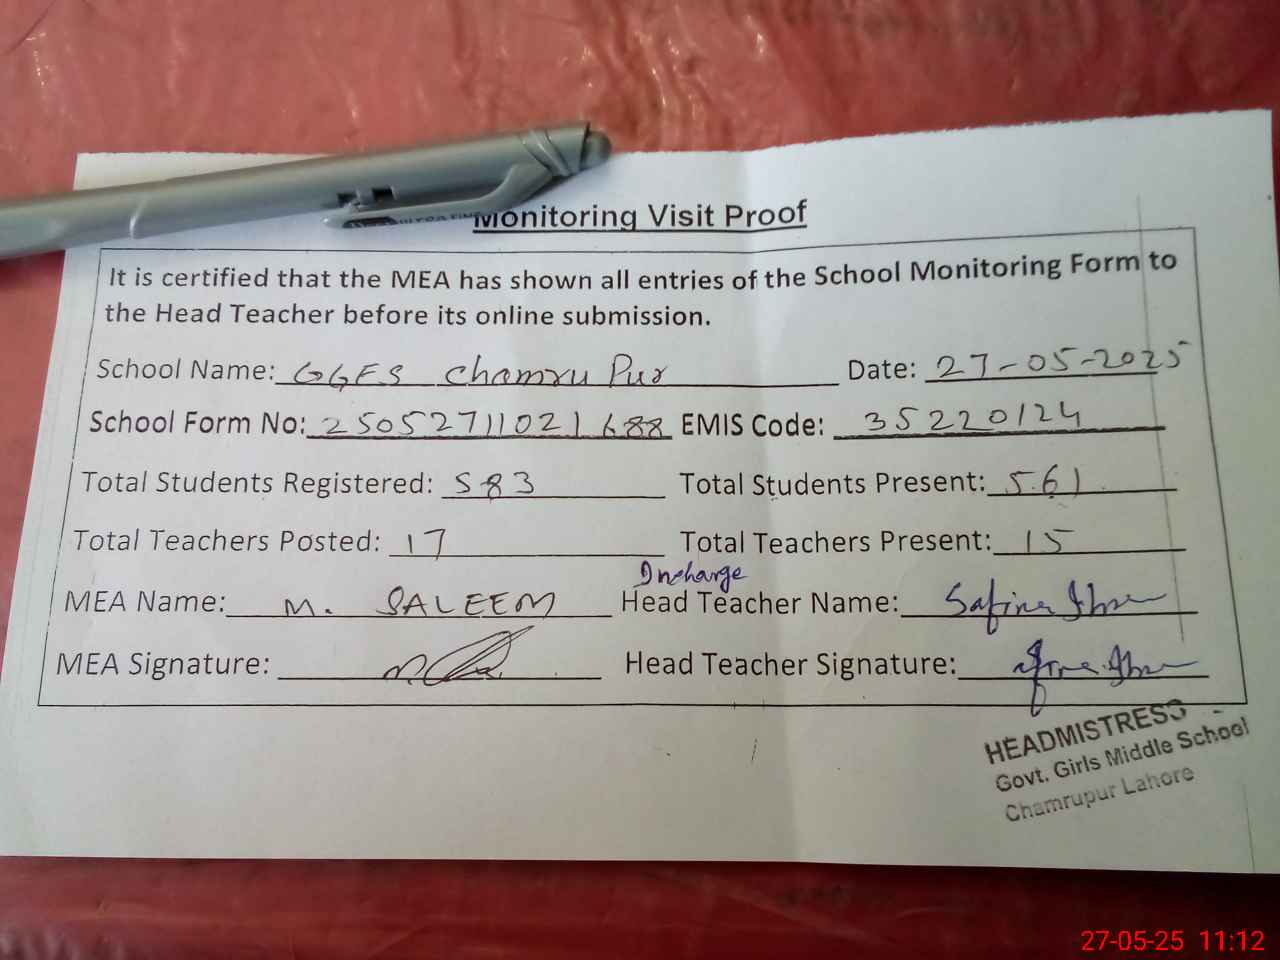 Monitoring Visit Proof
It is certified that the MEA has shown all entries of the School Monitoring Form to
the Head Teacher before its online submission.
School Name: GGES Chamru Pur Date: 27-05-2025
School Form No: 25052711021688 EMIS Code: 35220124
Total Students Registered: 583 Total Students Present: 561
Total Teachers Posted: 17 Total Teachers Present: 15
Incharge
MEA Name: M. SALEEM Head Teacher Name: Safina
MEA Signature: Head Teacher Signature:
HEADMISTRESS
Govt. Girls Middle School
Chamrupur Lahore
27-05-25 11:12